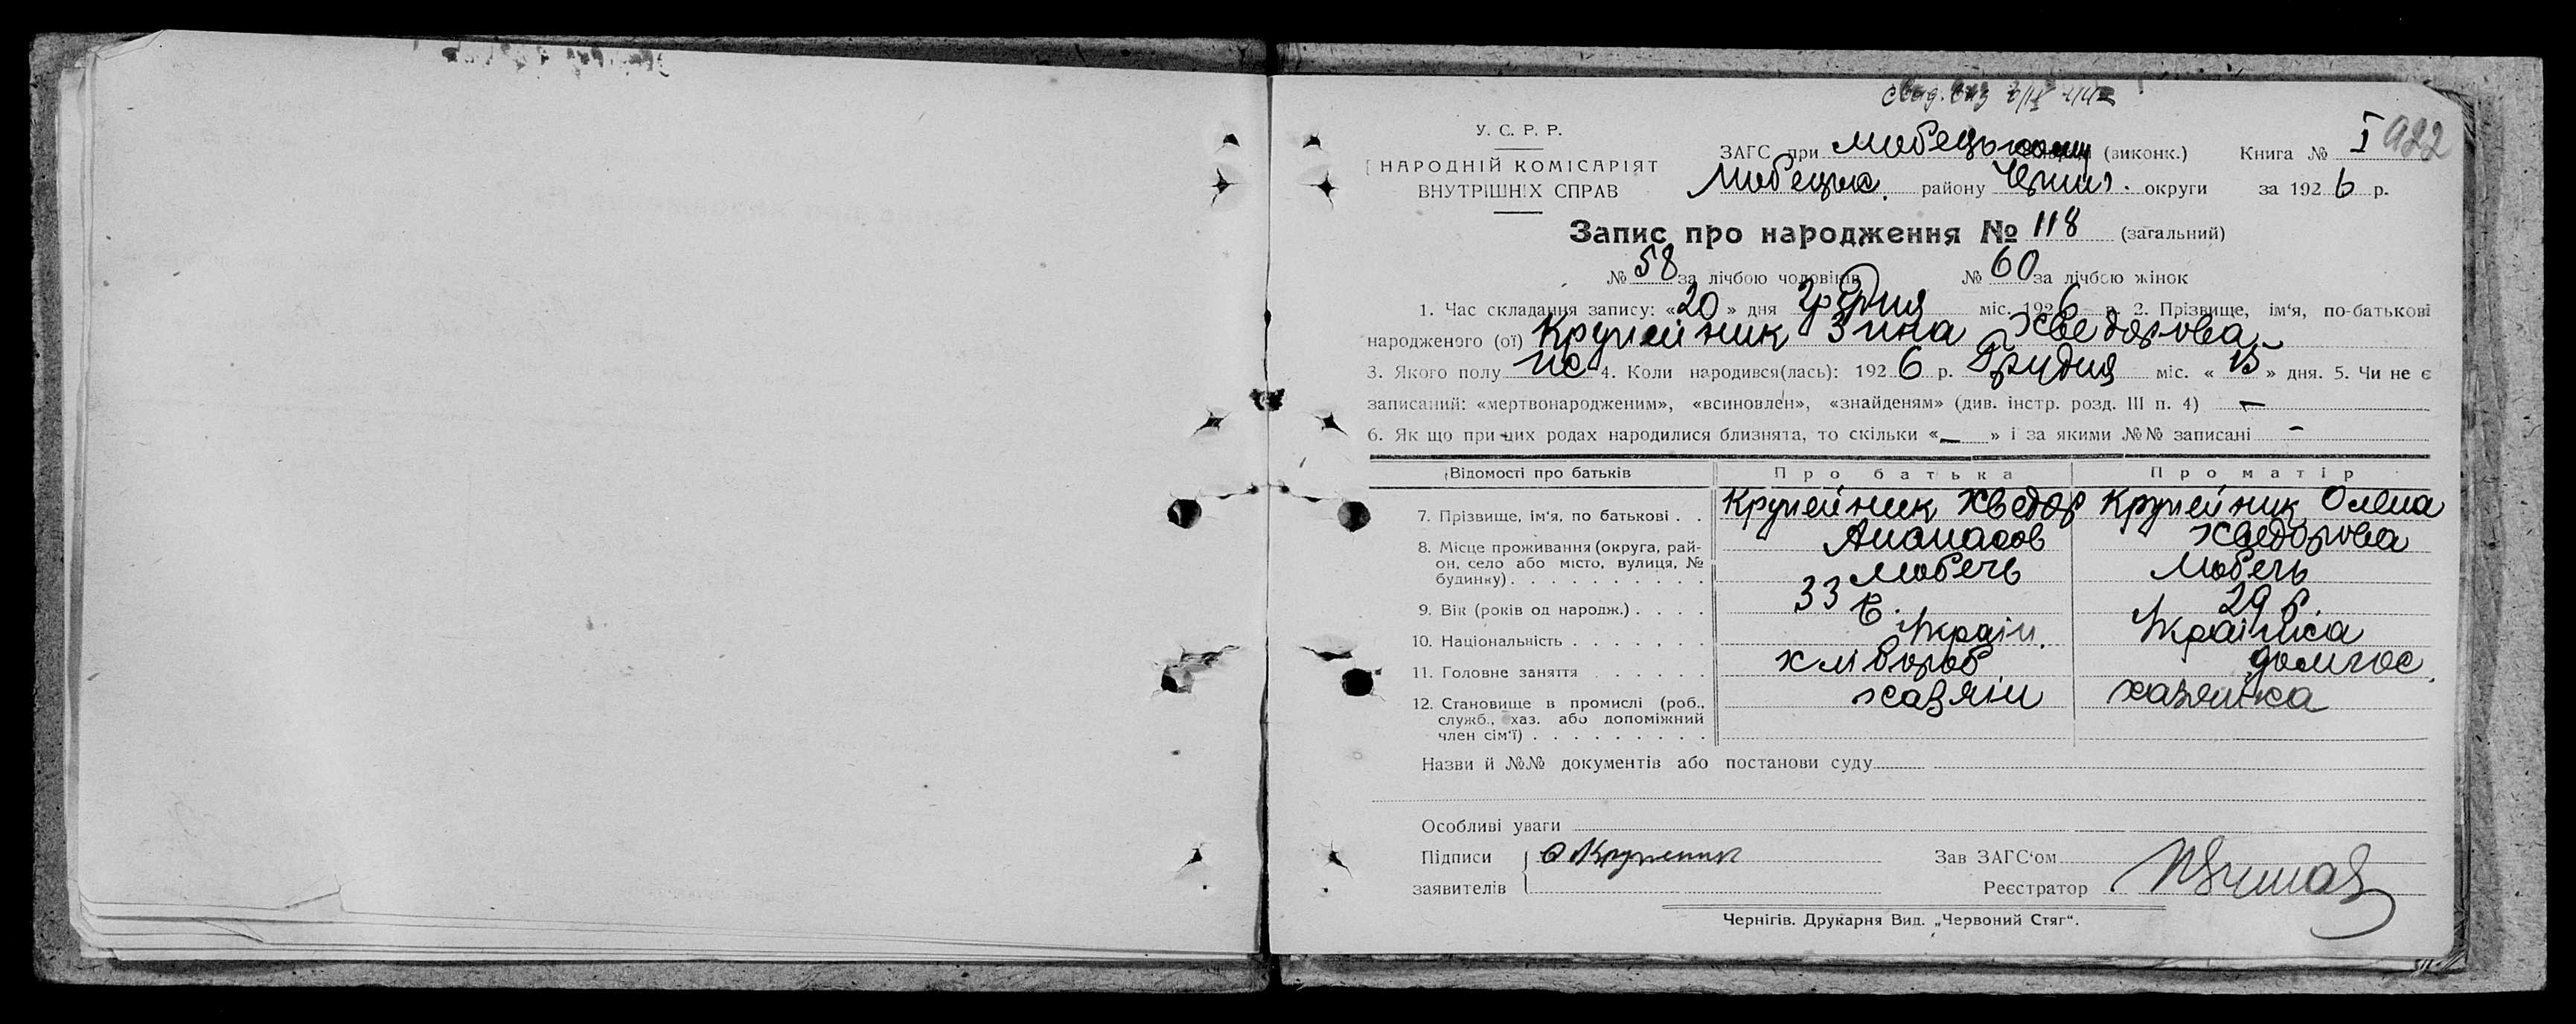 У. С. Р. Р.
НАРОДНІЙ КОМІСАРІЯТ
ВНУТРІШНІХ СПРАВ
ЗАГС при Любецькому (виконк.) Книга № I 922
Любецьк. району Черниг. округи за 1926 р.
Запис про народження № 118 (загальний)
№ 58 за лічбою чоловіків № 60 за лічбою жінок
1. Час складання запису: «20» дня Грудня міс. 1926 р. 2. Прізвище, ім‘я, по-батькові
народженого (ої) Крупейник Зина Хведорова
3. Якого полу жс 4. Коли народився(лась): 1926 р. Грудня міс. «15» дня. 5. Чи не є
записаний: «мертвонародженим», «всиновлен», «знайденям» (див. інстр. розд. III п. 4) —
6. Як що при цих родах народилися близнята, то скільки «—» і за якими №№ записані -
Відомості про батьків Про батька Про матір
7. Прізвище, ім‘я, по батькові . . Крупейник Хведор Крупейник Олена
Апанасов Хведорова
8. Місце проживання (округа, рай-
он, село або місто, вулиця, №
будинку) . . . . . . . . . . Любечь Любечь
9. Вік (років од народж.) . . . . 33 р. 29 р.
10. Національність . . . . . . . Україн. Українка
11. Головне заняття . . . . . . хлібороб домгос.
12. Становище в промислі (роб., хазяін хазяйка
служб., хаз. або допоміжний
член сім‘ї) . . . . . . . . .
Назви й №№ документів або постанови суду
Особливі уваги
Підписи О Крупейник Зав ЗАГС‘ом
заявителів Реєстратор
Чернігів. Друкарня Вид. „Червоний Стяг“.